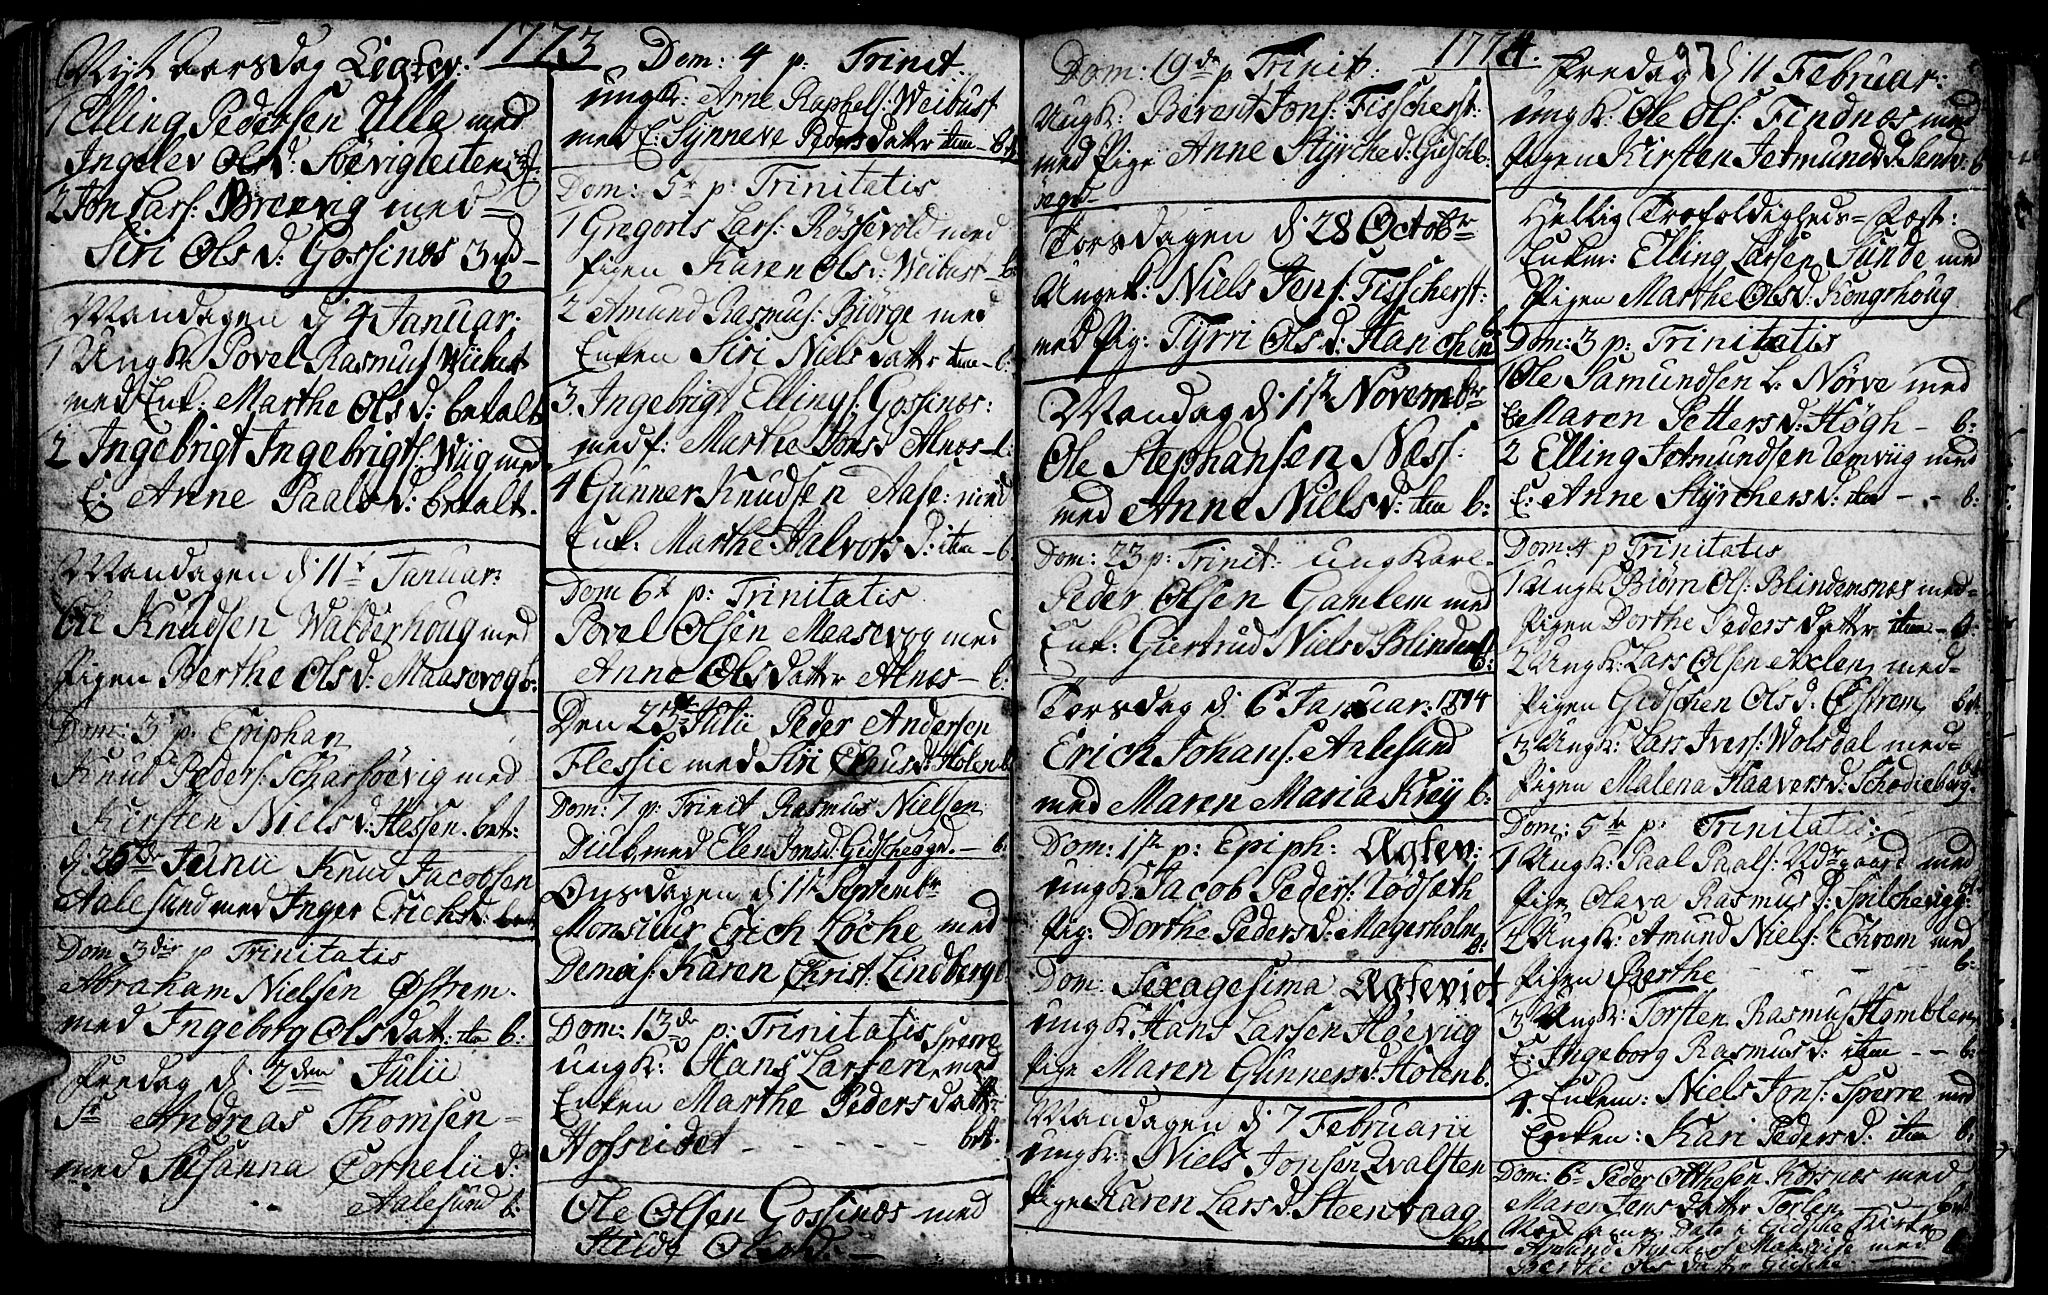 1773
Nyt aarsdag Egtev:
1 Elling Pedersen Ulla med
Ingelev Ols d: Søevigleiten
2 Jon Lars: Breevig med
Siri Ols d: Gossinæs 3
Mandagen d: 4 Januar:
1 Ungk: Povel Rasmus: Wiibust
med Enk: Marthe Ols d: betalt
2 Ingebrigt Ingebrigts: Wiig med
E: Anne Paals d: betalt.
Mandagen d: 11t Januar:
Ole Knudsen Walderhoug med
Pigen Berthe Ols d: Maasevog b:
Dom: 3 p: Epiphan
Knud Peders: Scharsøevig med
Kirsten Niels d: Hessen. bet:
d: 26de Junii Knud Jacobsen
Aalesund med Inger Erichs d: bet
Dom 3die p Trinitatis
Abraham Nielsen Østrem
med Ingeborg Ols datt: item b:
Fredag d: 2den Julii
Sr Andreas Thomsen
med Susanna Cornelii d:
Aalesund b:
Dom: 4 p: Trinit.
ungk: Arne Raphels: Weibust
med E: Synneve Peders datter item b:
Dom: 5te p: Trinitatis
1 Gregoris Lars: Røssevold med
Pigen Karen Ols d: Weibust b:
2 Amund Rasmus: Biørge med
Enken Siri Niels datter item b:
3 Ingebrigt Ellings: Gossinæs:
med p: Marthe Jons d Alnæs b:
4 Gunner Knudsen Aase: med
Enk: Marthe Halvors d: item b:
Dom 6t p: Trinitatis
Povel Olsen Maasevog med
Anne Ols datter Alnæs b:
Den 23de Julii Peder Andersen
Flessie med Siri Claus d: Holen b
Dom: 7 p: Trinit Rasmus Nielsen
Duib med Elen Jons d: Gidschegd. b:
Onsdagen d: 1t Septembr
Monsieur Erich Løche med
Demois: Karen Christ: Lindberg
Dom: 13de p: Trinitatis
ungk: Hans Larsen Sperre med
Enken Marthe Peders datt:
Hofseidet bet.
Ole Olsen Gossinæs med
Hilde Ols d:
1774.
97
Dom: 19de p Trinit:
Ungk: Berent Jons: Fisscherst:
med Pige Anne Styrche d: Gidsch b:
Torsdagen d: 28 Octobr
Ungk: Niels Jens: Fisscherst:
med Pig: Tyrri Ols d: Hanchen b:
Mandag d: 1ste Novembr
Ole Stephansen Næss:
med Anne Niels d: item b:
Dom: 23 p: Trinit: ungkarl
Peder Olsen Gamlem med
Enk: Giertrud Niels d Blindem b:
Torsdag d: 6t Januar: 1774
Erich Johans: Aalesund
med Maren Maria Krøy b:
Dom: 1ste p: Epiph: Egtev:
ungk: Jacob Peders: Tødseth
Pig: Dorthe Peders d: Magerholm b:
Dom: Sexagesima Egteviet
ungk: Hans Larsen Høeviig
Pige Maren Gunners d: Holen b.
Mandagen d: 7 Februarii
ungk: Niels Jonsen Qvalsten
Pige Karen Lars d: Steenvaag
bet
Fredag d: 11 Februar:
ungk: Ole Ols: Findnæs med
Pigen Kirsten Jetmund d: b
Hellig Trefoldigheds-Fest:
Enkm: Elling Larsen Sunde med
Pigen Marthe Ols d: Kongshoug
Dom: 3 p: Trinitatis
1 Ole Samundsen L: Nørve med
E Maren Petters d: Høgh b:
2 Elling Jetmundsen Emviig med
E: Anne Styrchers d: item b:
Dom: 4 p Trinitatis
1 Ungk Biørn Ols: Blindemsnæs med
Pigen Dorthe Peders datter item b:
2 Ungk: Lars Olsen Axlen med
Pigen Gidschen Ols d: Østrem bet
3 Ungk: Lars Ivers: Wolsdal med
Pigen Malena Haavers d: Schodieberg.
Dom: 5te p: Trinitatis:
1 Ungk: Paal Paals: Udgaard med
Pige Olava Rasmus d: Spilcheviig:
2 Ungk: Amund Niels: Echrem med
Pigen Berthe b:
3 Ungk: Torsten Rasmus: Humblen
E: Ingeborg Rasmus d: item b:
4 Enkem: Niels Jons: Sperre med
Enken: Kari Peders d: item b:
Dom: 6te Peder Otthesen Kørsnæs med
Maren Jens datter Torlen bet:
Amund Styrchers: Molnviie med
Berthe Ols datter Gidsche.